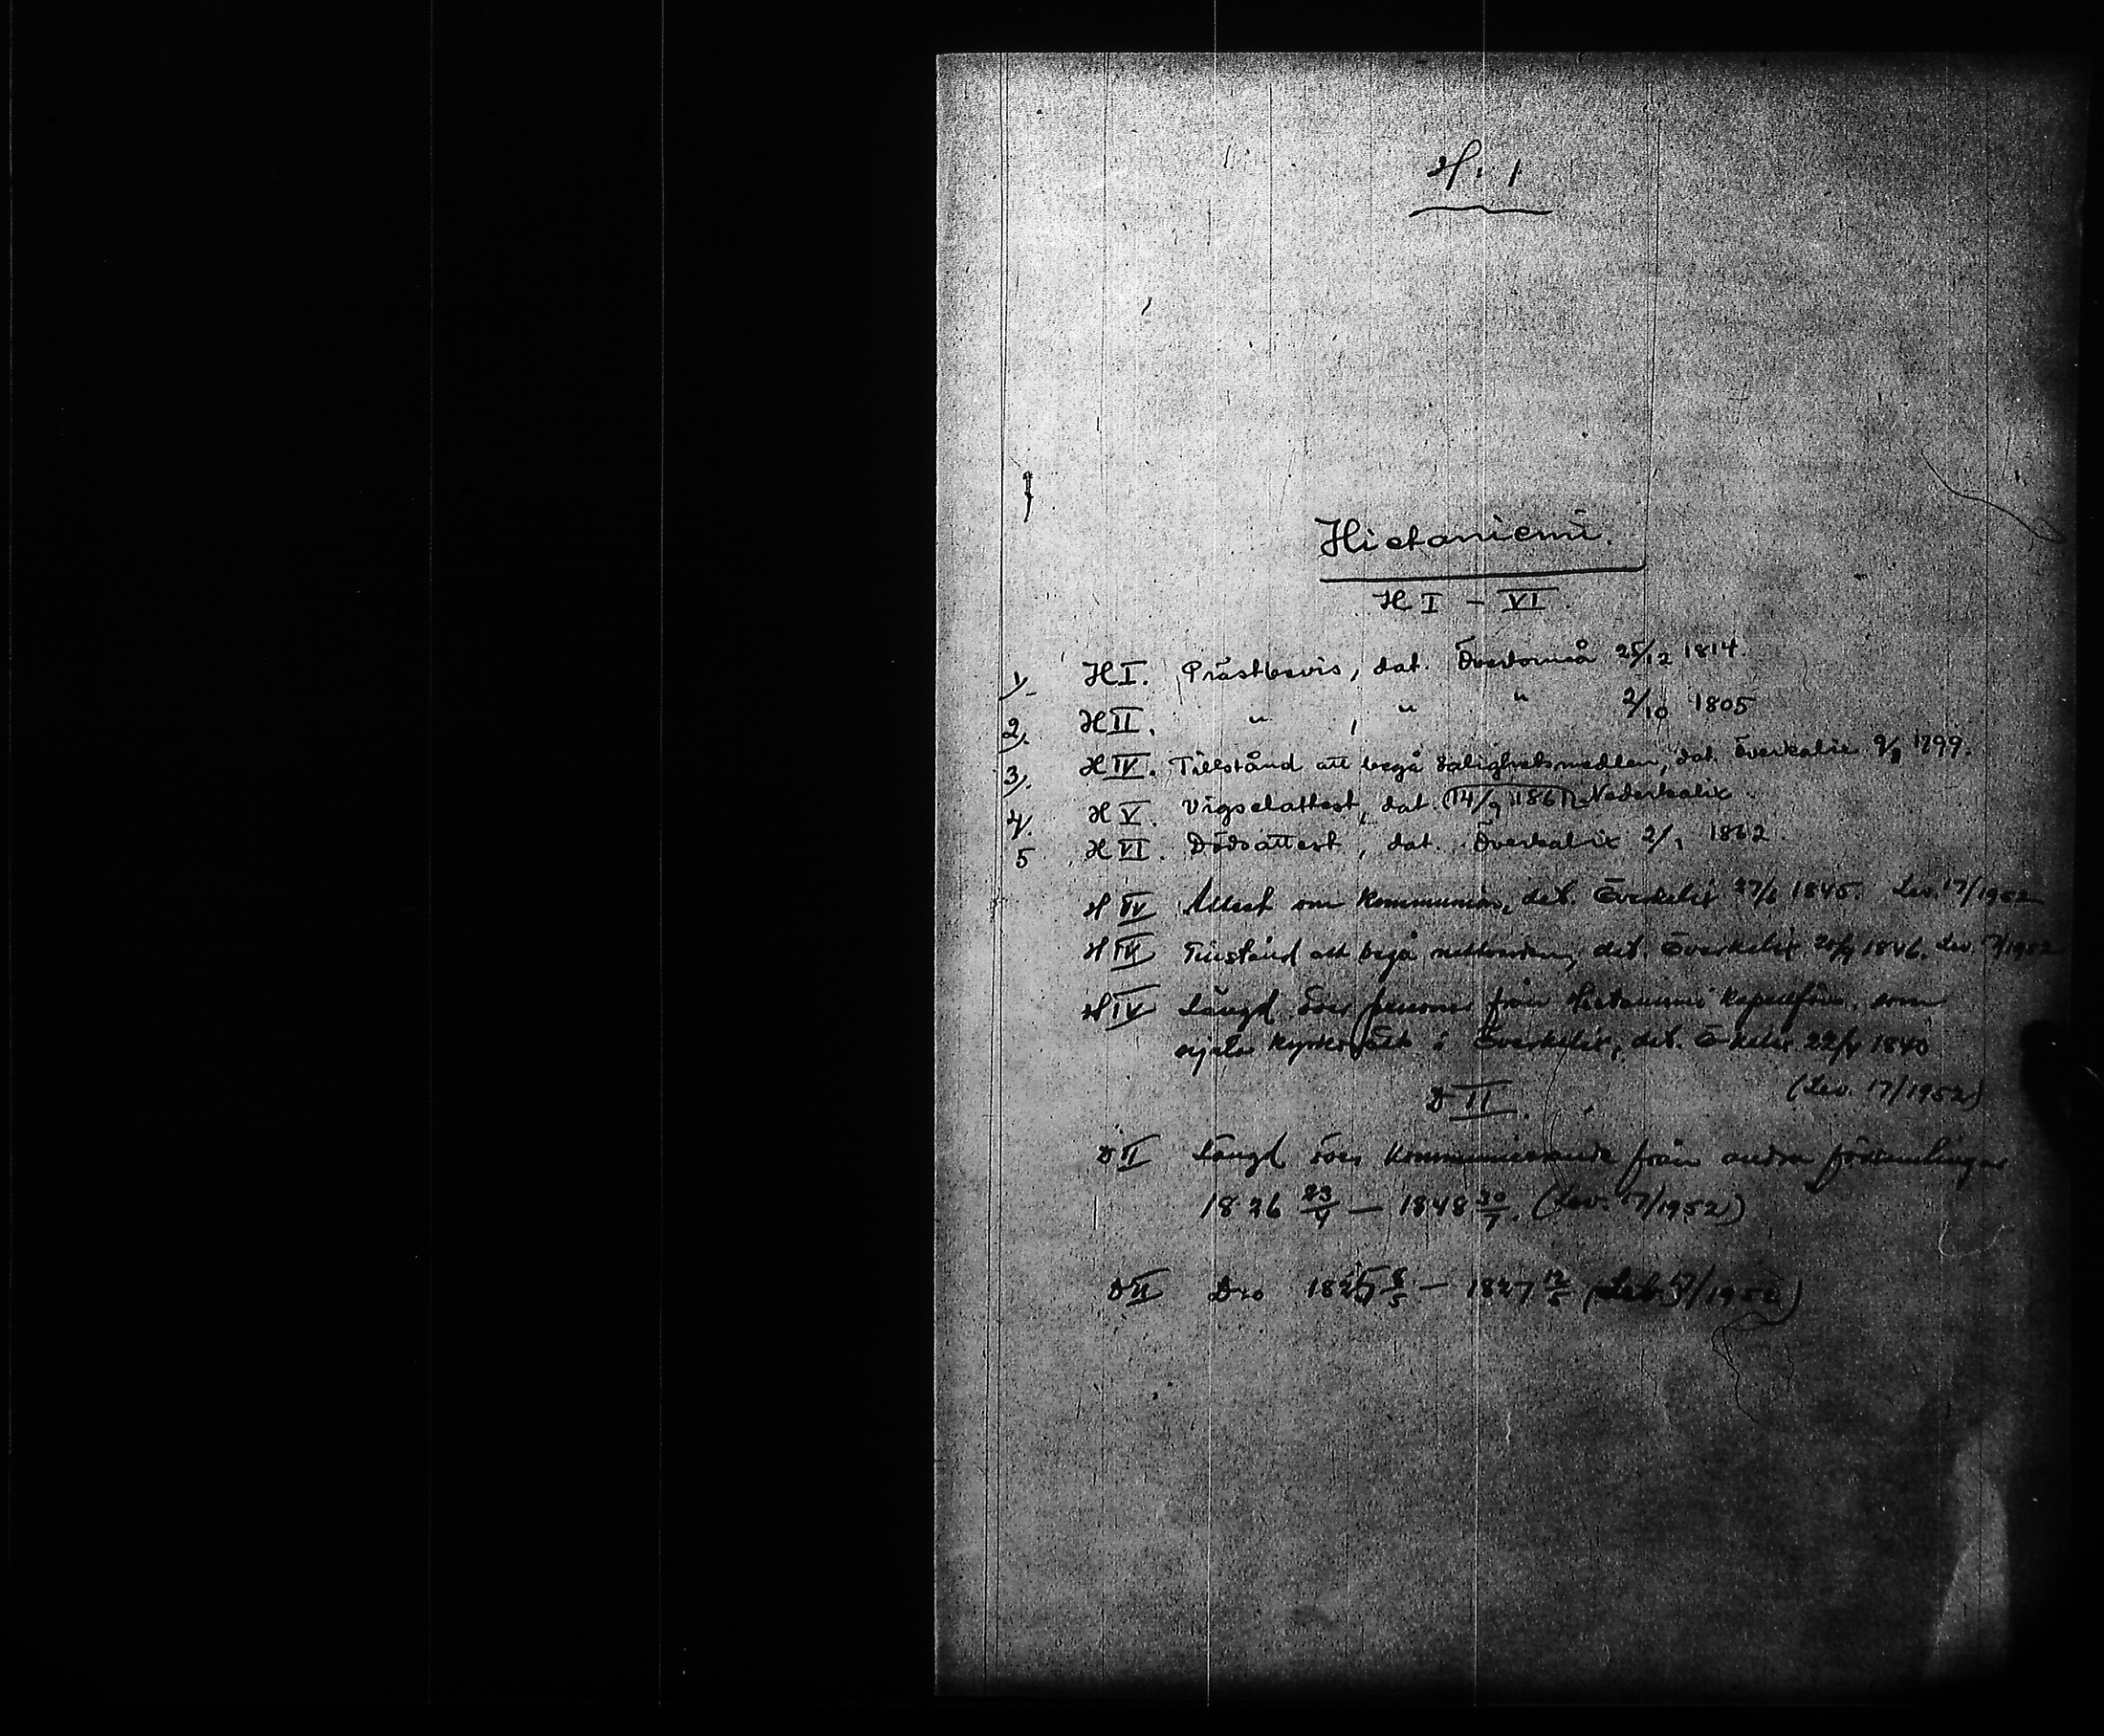 H: 1
Hietaniemi.
H I - VI
1). H I. Prästbevis, dat. Övertorneå 25/12 1814
2). H II. " , " " 2/10 1805
3). H IV. Tillstånd att begå salighetsmedlen, dat. Överkalix 9/9 1799.
4). H V. Vigselattest, dat. 14/9 1861 Nederkalix
5 H VI. Dödsattest, dat. Överkalix 2/1 1862.
H IV Attest om kommunion, dat. Överkalix 27/6 1845. Lev. 17/1952
H IV Tillstånd att begå nattvarden, dat. Överkalix 20/9 1846. Lev. 17/1952
H IV Längd över personer från Hietaniemi kapellförs. som
kyrkoplikt i Överkalix, dat. Ö-kalix 22/4 1840
(Lev. 17/1952)
D II.
D II Längd över kommunicerande från andra församlingar
1836 23/4 — 1848 30/7. (Lev. 17/1952)
D II D:o 1825 8/5 — 1827 12/5 (Lev. 17/1952)